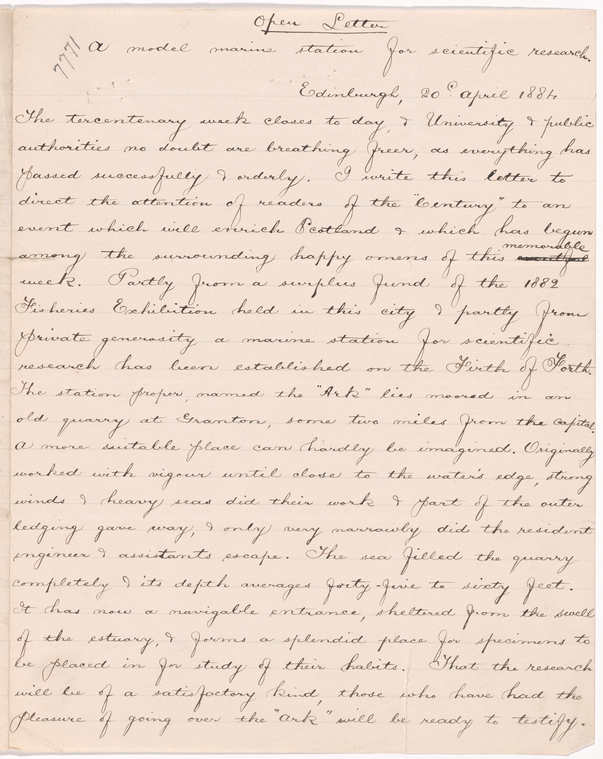 Open Letter
7771
A model marine station for scientific research.
Edinburgh, 20th April 1884
The tercentenary week closes to day, & University & public
authorities no doubt are breathing freer, as everything has
passed successfully & orderly. I write this letter to
direct the attention of readers of the "Century" to an
event which will enrich Scotland & which has begun
memorable
among the surrounding happy omens of this eventful
week. Partly from a surplus fund of the 1882
Fisheries Exhibition held in this city & partly from
private generosity a marine station for scientific
research has been established on the Firth of Forth.
The station proper, named the "Ark" lies moored in an
old quarry at Granton, some two miles from the capital.
A more suitable place can hardly be imagined. Originally
worked with vigour until close to the water's edge, strong
winds & heavy seas did their work & part of the outer
ledging gave way, & only very narrowly did the resident
engineer & assistants escape. The sea filled the quarry
completely & its depth averages forty-five to sixty feet.
It has now a navigable entrance, sheltered from the swell
of the estuary, & forms a splendid place for specimens to
be placed in for study of their habits. That the research
will be of a satisfactory kind, those who have had the
pleasure of going over the "Ark" will be ready to testify.